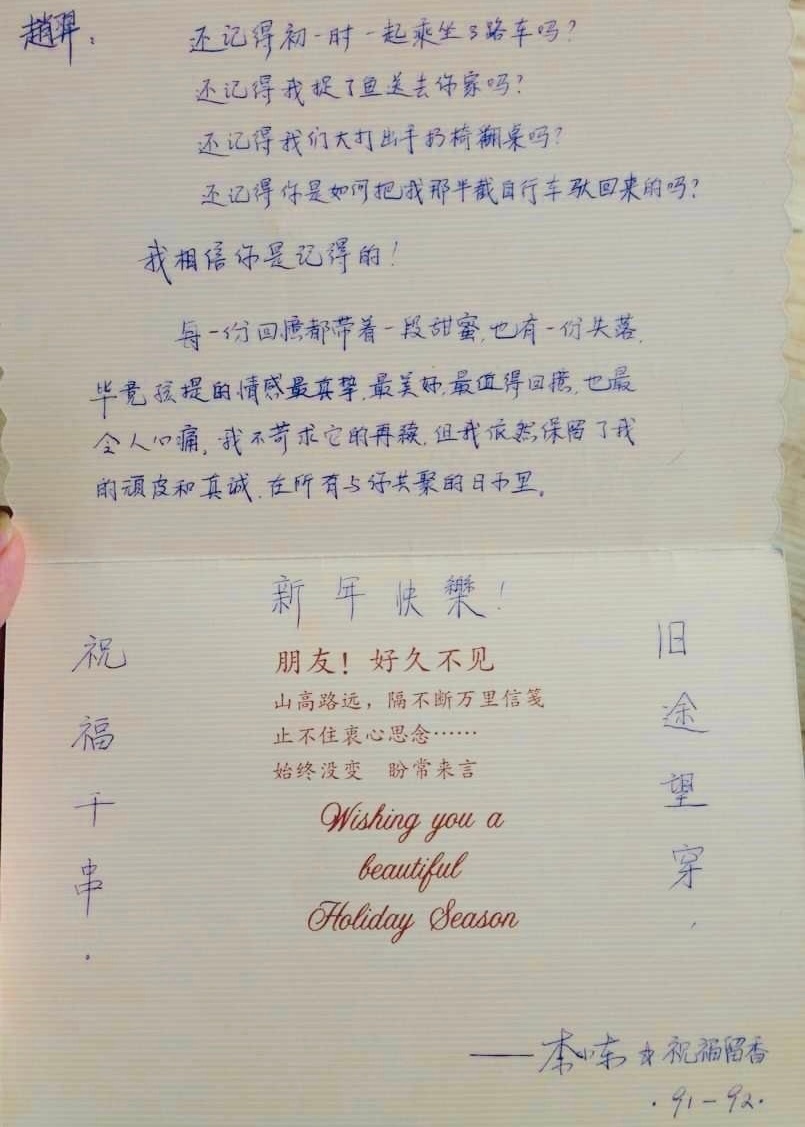 赵羿：
还记得初一时一起乘坐3路车吗？
还记得我捉了鱼送去你家吗？
还记得我们大打出手扔椅翻桌吗？
还记得你是如何把我那半截自行车驮回来的吗？
我相信你是记得的！
每一份回忆都带着一段甜蜜，也有一份失落，
毕竟孩提的情感最真挚，最美好，最值得回忆，也最
令人心痛，我不苛求它的再续，但我依然保留了我
的顽皮和真诚，在所有与你共聚的日子里。
新年快樂！
旧途望穿，
祝福千串。
朋友！好久不见
山高路远，隔不断万里信笺
止不住衷心思念……
始终没变 盼常来言
Wishing you a
beautiful
Holiday Season
——李 祝福留香
·91－92·